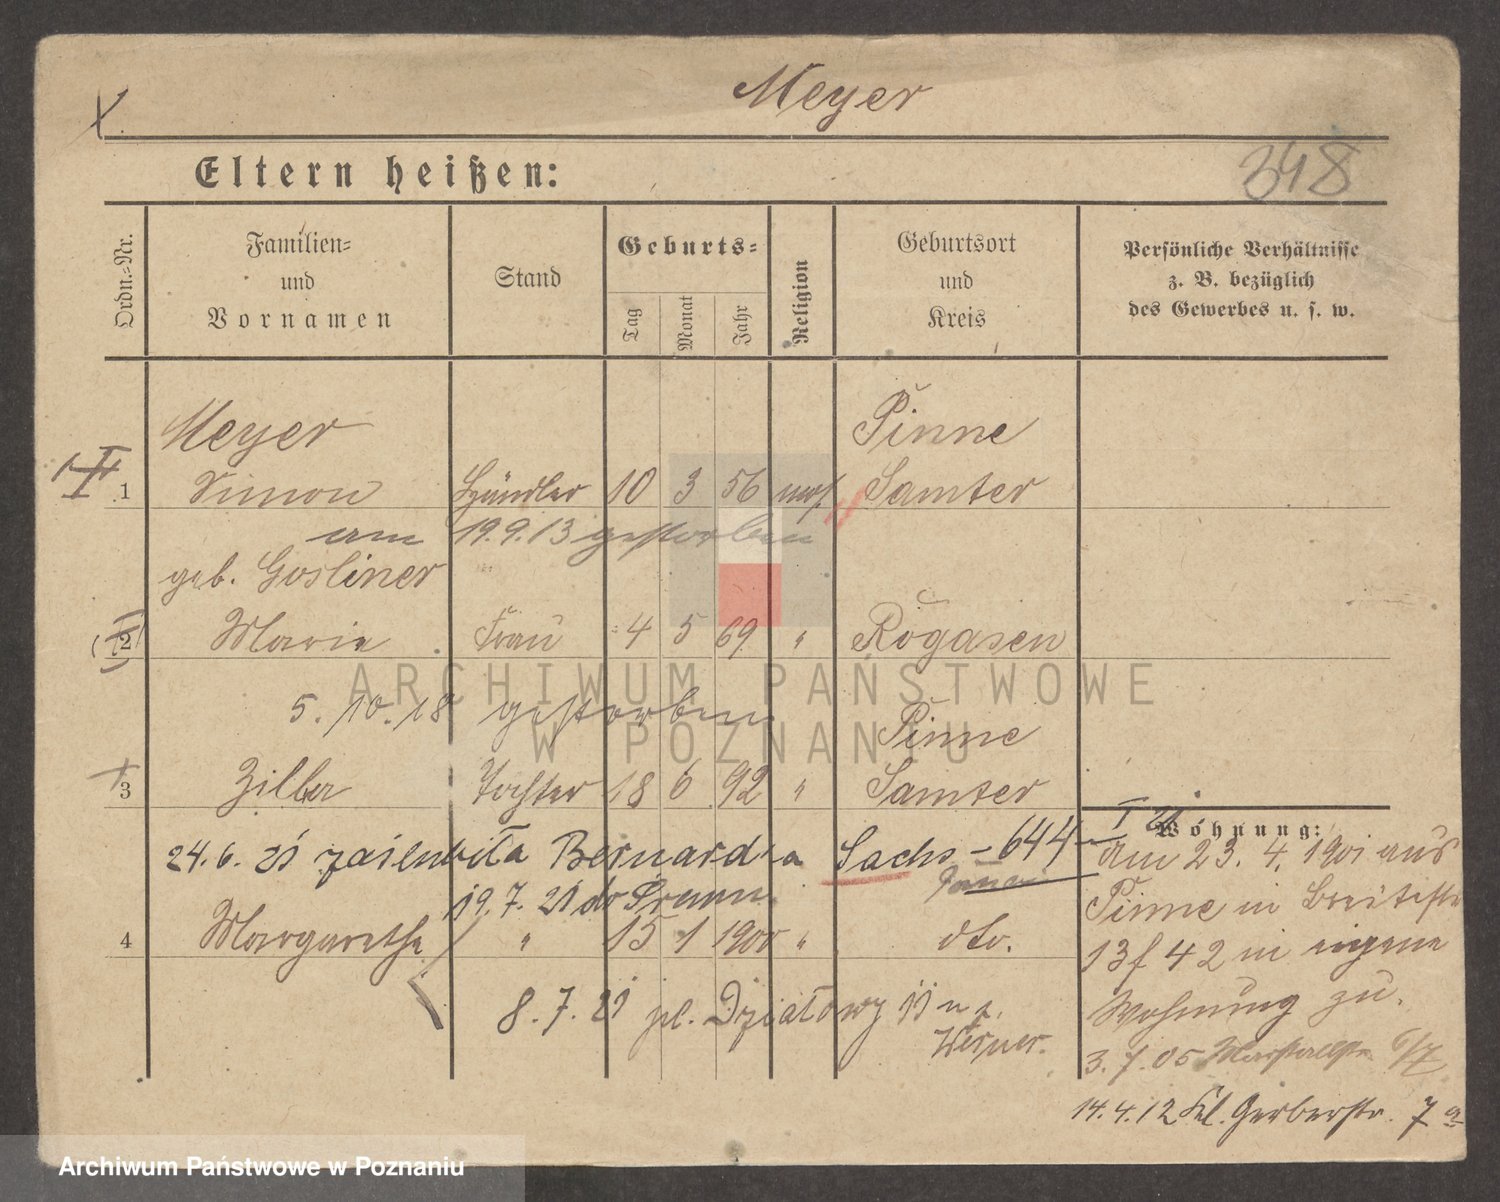 Meyer
348
Eltern heißen:
Ordn.=Nr.
Familien=
und
Vornamen
Stand
Geburts=
Tag
Monat
Jahr
Religion
Geburtsort
und
Kreis
Persönliche Verhältnisse
z. B. bezüglich
des Gewerbes u. s. w.
Meyer Pinne
1 Simon Händler 10 3 56 mos. Samter
am 19.9.13 gestorben
geb. Gosliner
2 Marie Frau 4 5 69 " Rogasen
5.10.18 gestorben
Pinne
3 Zilla Tochter 18 6 92 " Samter
24.6.21 Bernard Sachs - 644
19.7.21 do Śremu
4 Margarethe " 15 1 1900 " dto.
8.7.21 pl. Działowy 11 u p.
Werner.
Wohnung:
am 23.4.1901 aus
Pinne in Breitestr
13 f 42 in eigene
Wohnung zu.
3.7.05 6/7
14.4.12 Kl. Gerberstr. 7a
ARCHIWUM PAŃSTWOWE
W POZNANIU
Archiwum Państwowe w Poznaniu